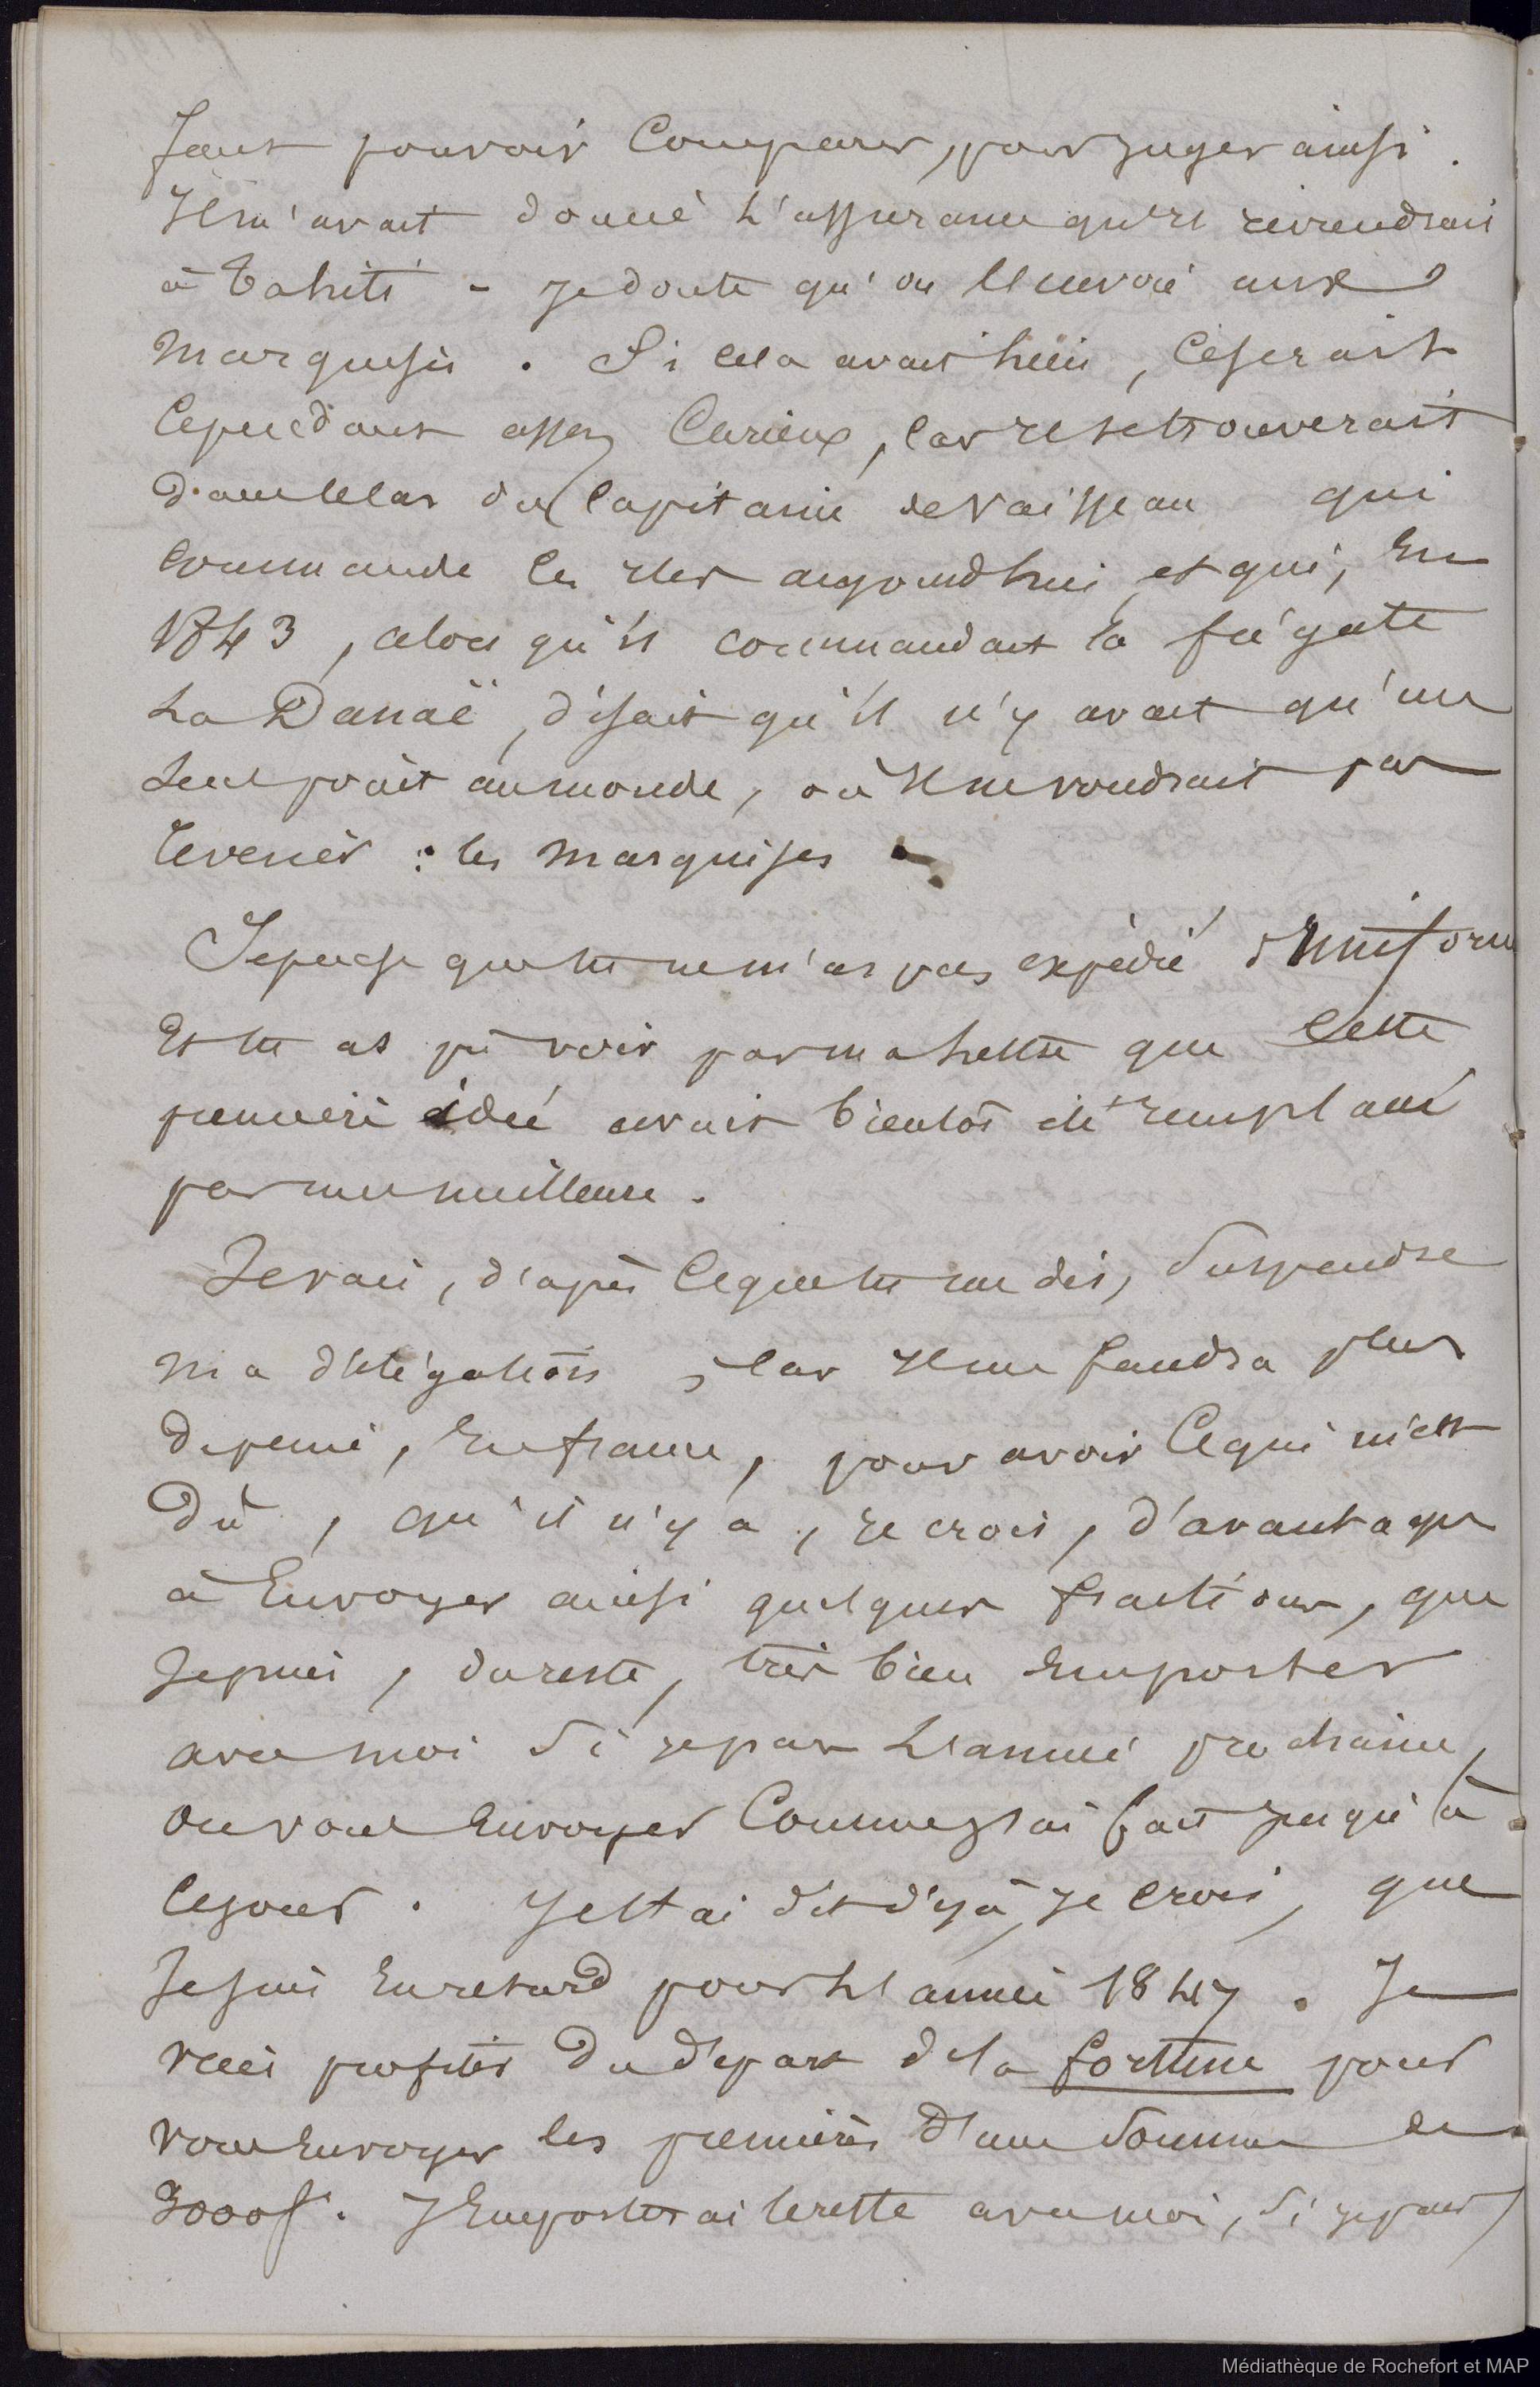 faut pouvoir comparer, pour juger ainsi.
Il m'avait donné l'assurance qu'il reviendrait
à Tahiti - je doute qu'on l'envoie aux
Marquises. Si cela avait lieu, ce serait
cependant assez curieux, car il se trouverait
dans le cas du Capitaine de Vaisseau qui
commande les îles aujourd'hui et qui, en
1843, alors qu'il commandait la frégate
La Danaë, disait qu'il n'y avait qu'un
seul point au monde, où il ne voudrait pas
revenir : les Marquises.
Je pense que tu ne m'as pas expédié d'uniforme
Et tu as pu voir par ma lettre que cette
première idée avait bientôt été remplacée
par une meilleure.
Je vais, d'après ce que tu me dis, suspendre
ma délégation, car il me faudra plus
de peine, en france, pour avoir ce qui m'est
dû, qu'il n'y a, je crois, d'avantages
à envoyer ainsi quelques fractions, que
je puis, du reste, très bien emporter
avec moi si je pars l'année prochaine,
ou vous envoyer comme je l'ai fait jusqu'à
ce jour. Je t'ai dit déjà, je crois, que
je suis en retard pour l'année 1847. Je
vais profiter du départ de la fortune pour
vous envoyer les premières d'une somme de
3000f. J'emporterai le reste avec moi, si je pars
Médiathèque de Rochefort et MAP